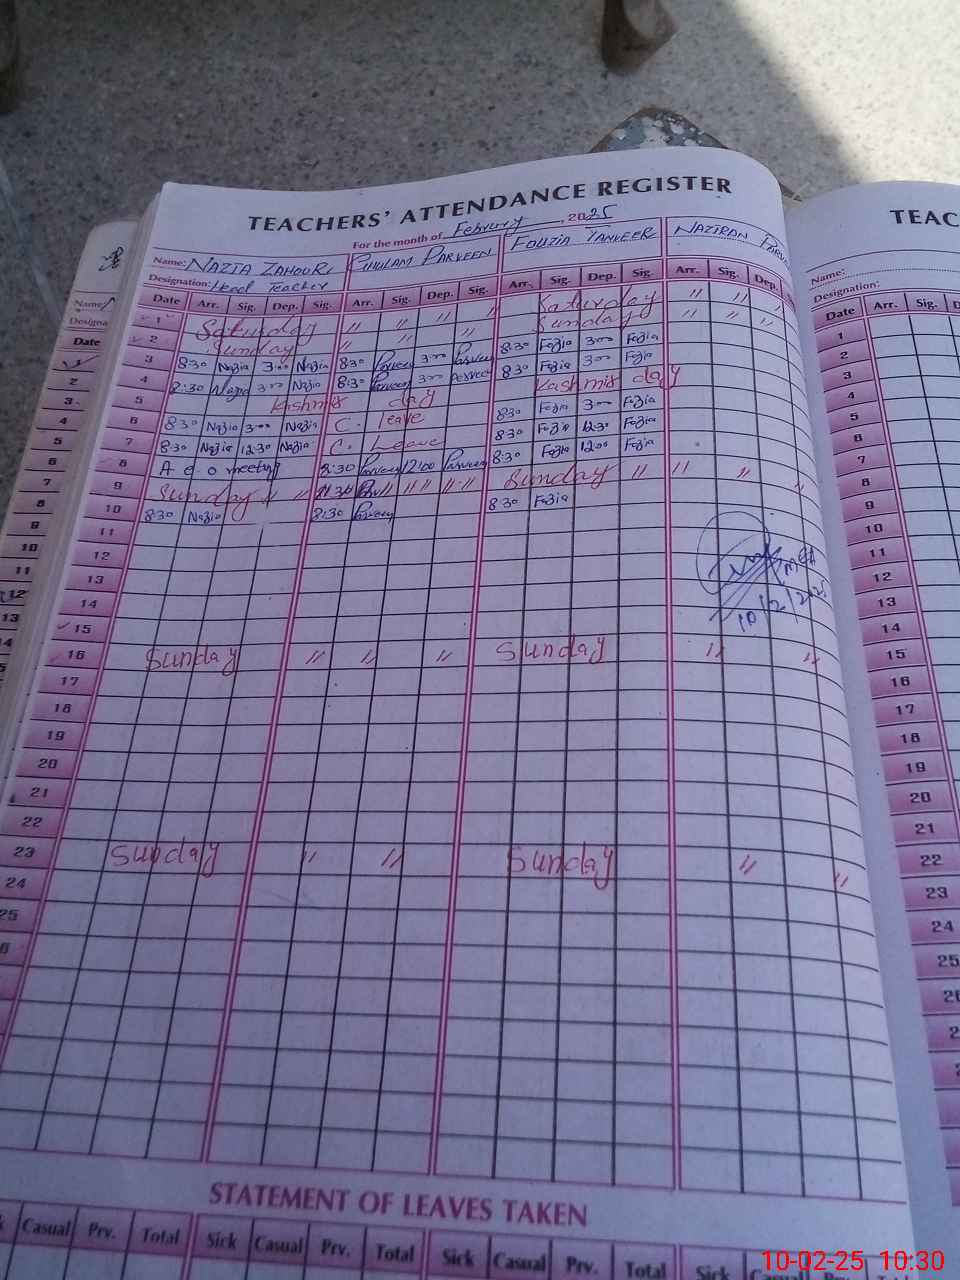 TEACHERS' ATTENDANCE REGISTER
For the month of February, 2025
Name: NAZIA ZAHOOR GHULAM PARVEEN FOUZIA TANVEER NAZIRAN
Designation: Head Teacher
Date Arr. Sig. Dep. Sig. Arr. Sig. Dep. Sig. Arr. Sig. Dep. Sig. Arr. Sig. Dep.
1 Saturday " " " Saturday " "
2 Sunday " " " Sunday " " "
3 8:30 Nazia 3:00 Nazia 8:30 Parveen 3:00 Parveen 8:30 Fozia 3:00 Fozia
4 8:30 Nazia 3:00 Nazia 8:30 Parveen 3:00 Parveen 8:30 Fozia 3:00 Fozia
5 Kashmir day Kashmir day
6 8:30 Nazia 3:00 Nazia C. leave 8:30 Fozia 3:00 Fozia
7 8:30 Nazia 12:30 Nazia C. Leave 8:30 Fozia 12:30 Fozia
8 A e o meeting 8:30 Parveen 12:00 Parveen 8:30 Fozia 12:00 Fozia
9 Sunday " " " " " " Sunday " " " "
10 8:30 Nazia 8:30 Parveen 8:30 Fozia
11
12
13
14
10/2/2025
15
16 Sunday " " " Sunday " "
17
18
19
20
21
22
23 Sunday " " Sunday " "
24
25
STATEMENT OF LEAVES TAKEN
Casual Prv. Total Sick Casual Prv. Total Sick Casual Prv. Total Sick
TEAC
Name:
Designation:
Date Arr. Sig.
1
2
3
4
5
6
7
8
9
10
11
12
13
14
15
16
17
18
19
20
21
22
23
24
25
Name
Designa
Date
1
2
3
4
5
6
7
8
9
10
11
12
13
10-02-25 10:30